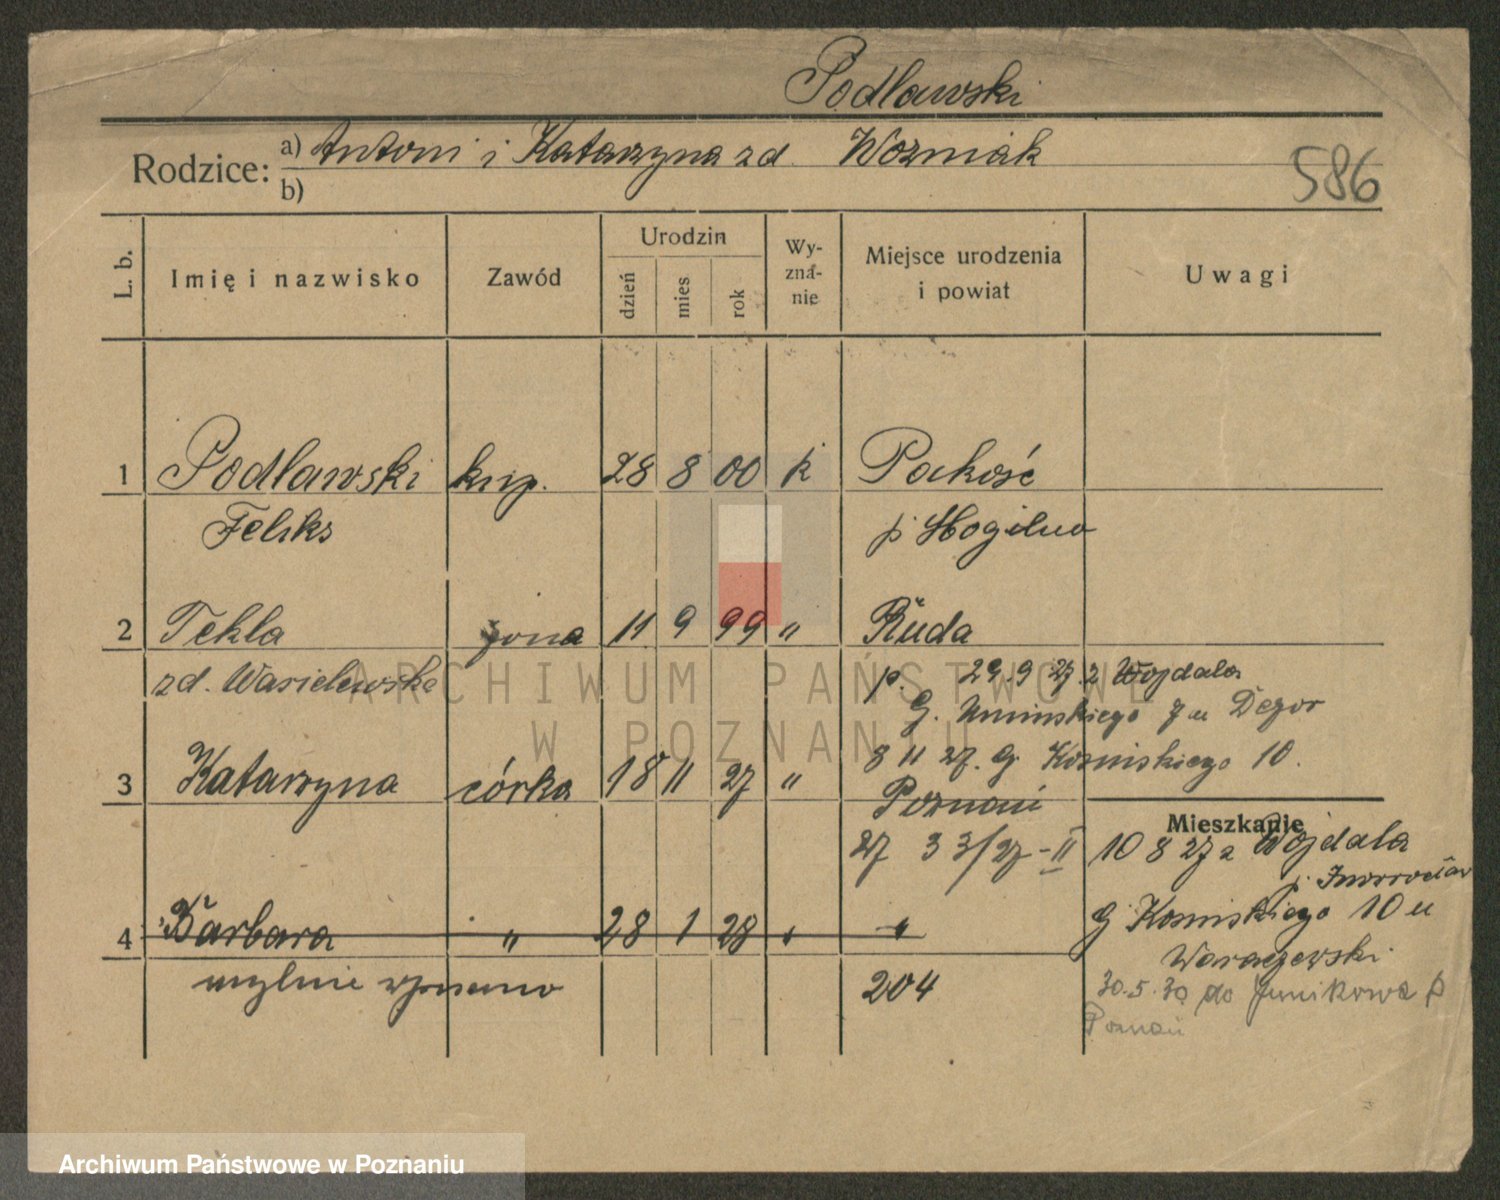 Podlawski
Rodzice: a) Antoni i Katarzyna zd. Wozniak
b)
586
L. b.
Imię i nazwisko
Zawód
Urodzin
dzień
mies
rok
Wy-
zna-
nie
Miejsce urodzenia
i powiat
Uwagi
1 Podlawski kup. 28 8 00 k Pakość
Feliks p Mogilno
2 Tekla żona 11 9 99 " Ruda
zd. Wasielewska p. 29.9 27. z Wojdala
G. Uminskiego 7 u Dezor
8 11 27. G. Kosinskiego 10.
3 Katarzyna córka 18 11 27 " Poznań
Mieszkanie
27 3 3/27-II 10 8 27 z Wojdala
p.
4 Barbara " 28 1 28 " "
G Kosinskiego 10 u
mylnie wpisano 204
30.5.30 do Junikowa p
Poznań
ARCHIWUM PAŃSTWOWE
W POZNANIU
Archiwum Państwowe w Poznaniu